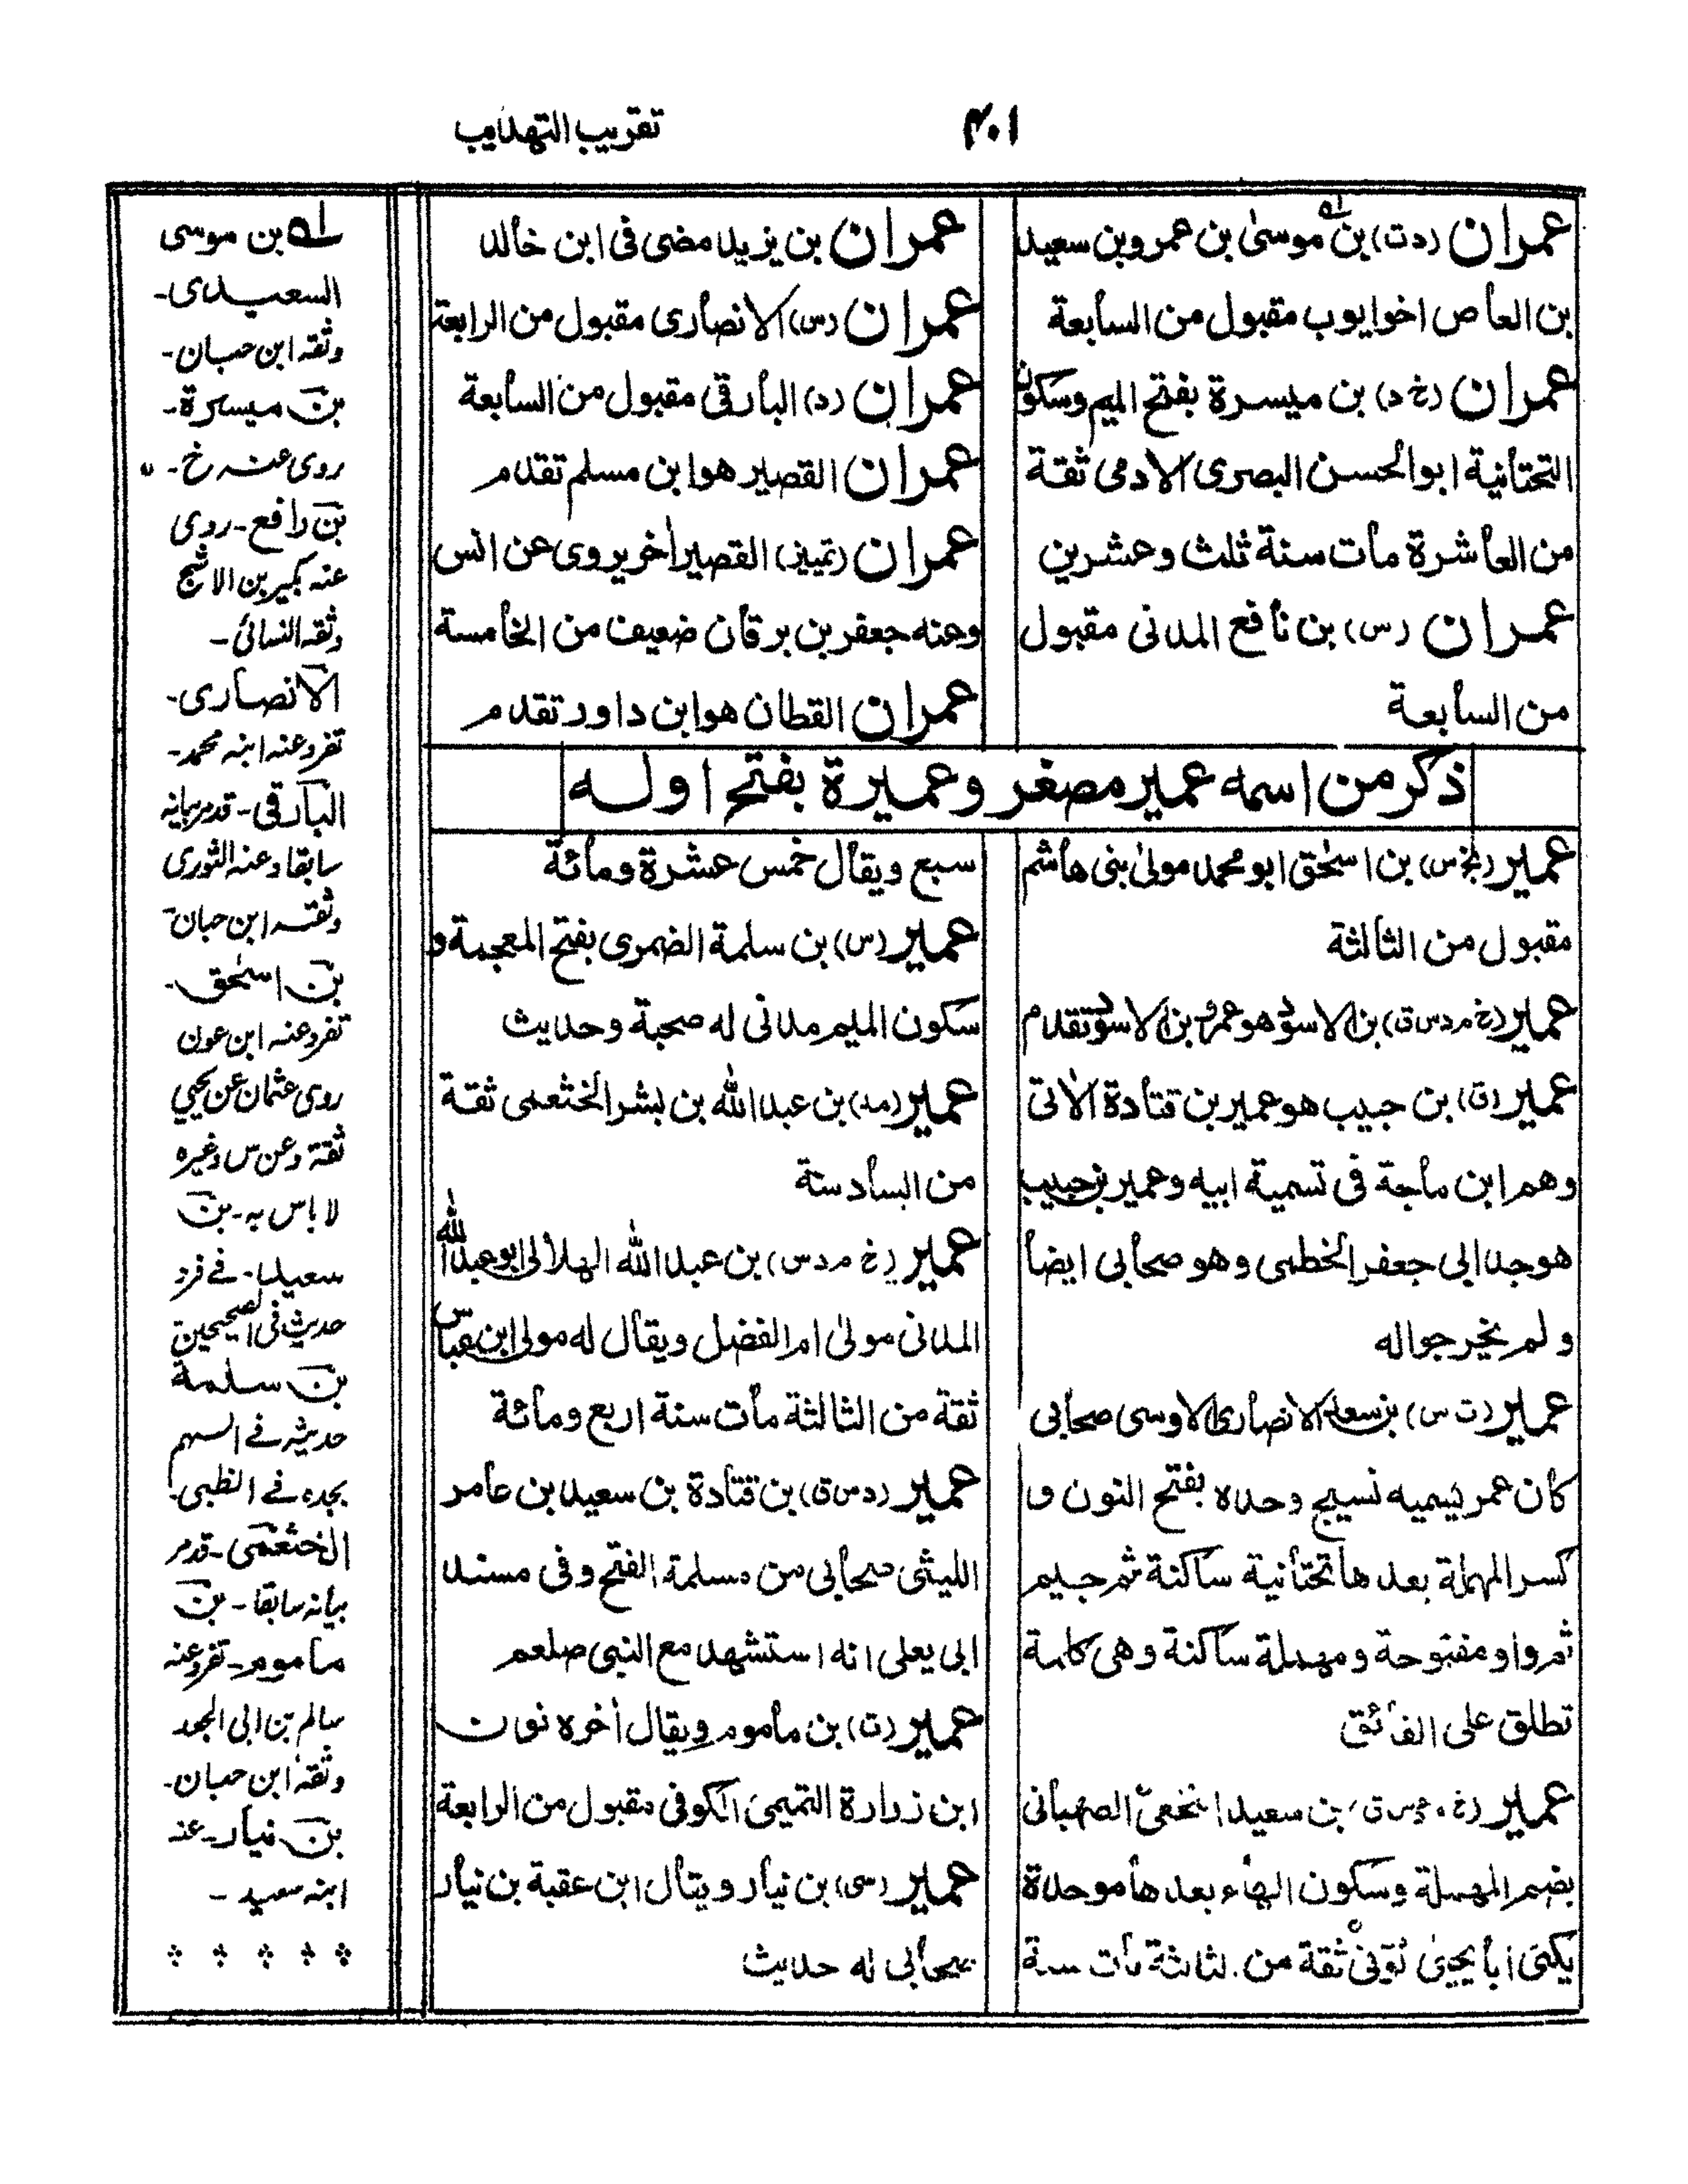 ٤٠١
تقريب التهذيب
عمران (د ت) بن موسىٰ بن عمرو بن سعيد
بن العاص اخو ايوب مقبول من السابعة
عمران (خ د) بن ميسرة بفتح الميم وسكون
التحتانية ابو الحسن البصرى الادمى ثقة
من العاشرة مات سنة ثلث وعشرين
عمران (س) بن نافع المدنى مقبول
من السابعة
عمران بن يزيد مضى فى ابن خالد
عمران (س) الانصارى مقبول من الرابعة
عمران (د) البارقى مقبول من السابعة
عمران القصير هو ابن مسلم تقدم
عمران (تمييز) القصير اٰخر يروى عن انس
وعنه جعفر بن برقان ضعيف من الخامسة
عمران القطان هو ابن داور تقدم
ذكر من اسمه عمير مصغر وعميرة بفتح اوله
عمير (بخ س) بن اسحٰق ابو محمد مولىٰ بنى هاشم
مقبول من الثالثة
عمير (خ م د س ق) بن الاسود هو عمرو بن الاسود تقدم
عمير (ق) بن حبيب هو عمير بن قتادة الاٰتى
وهم ابن ماجة فى تسمية ابيه وعمير بن حبيب
هو جد ابى جعفر الخطمى وهو صحابى ايضا
ولم يخرجوا له
عمير (ت س) بن سعد الانصارى الاوسى صحابى
كان عمر يسميه نسيج وحده بفتح النون و
كسر المهملة بعدها تحتانية ساكنة ثم جيم
ثم واو مفتوحة ومهملة ساكنة وهى كلمة
تطلق على الفائق
عمير بن سعيد النخعى الصهبانى
بضم المهملة وسكون الهاء بعدها موحدة
يكنى ابا يحيىٰ كوفى ثقة من الثالثة مات سنة
سبع ويقال خمس عشرة ومائة
عمير (س) بن سلمة الضمرى بفتح المعجمة و
سكون الميم مدنى له صحبة وحديث
عمير (مد) بن عبد الله بن بشر الخثعمى ثقة
من السادسة
عمير (خ م د س) بن عبد الله الهلالى ابو عبد الله
المدنى مولىٰ ام الفضل ويقال له مولى ابن عباس
ثقة من الثالثة مات سنة اربع ومائة
عمير (د س ق) بن قتادة بن سعيد بن عامر
الليثى صحابى من مسلمة الفتح وفى مسند
ابى يعلى انه استشهد مع النبى صلعم
عمير (ت) بن ماموم ويقال اٰخره نون
ابن زرارة التميمى الكوفى مقبول من الرابعة
عمير (سى) بن نيار ويقال ابن عقبة بن نيار
صحابى له حديث
لـه بن موسى
السعيدى-
وثقه ابن حبان-
بن ميسرة-
روى عنه خ-
بن نافع-روى
عنه بكير بن الاشج
وثقه النسائى-
الانصارى-
تفرد عنه ابنه محمد-
البارقى-قدمر بيانه
سابقا وعنه الثورى
وثقه ابن حبان-
بن اسحٰق-
تفرد عنه ابن عون
روى عثمان عن يحيي
ثقة وعن س وغيره
لا باس به-بن
سعيد فے فرد
حديث فى الصحيحين
بن سلمة
حديثه فے السهم
يجده فے الظبى-
الخثعمى-قدمر
بيانه سابقا-بن
ماموم-تفرد عنه
سالم بن ابى الجعد
وثقه ابن حبان-
بن نيار-عنه
ابنه سعيد-